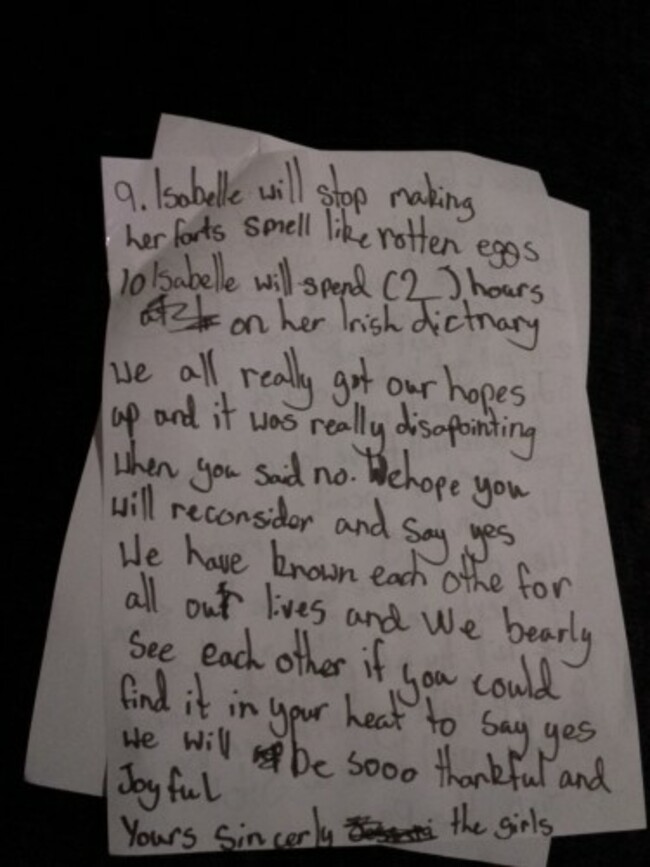 9. Isabelle will stop making
her farts smell like rotten eggs
10 Isabelle will spend (2) hours
on her Irish dictnary
We all really got our hopes
up and it was really disapointing
when you said no. We hope you
will reconsider and say yes
We have known each othe for
all our lives and we bearly
see each other if you could
find it in your heat to say yes
we will be sooo thankful and
Joyful
Yours sincerly the girls